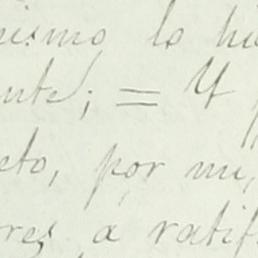 ismo lo hi
nte; = Y
eto, por mi,
res a ratifi